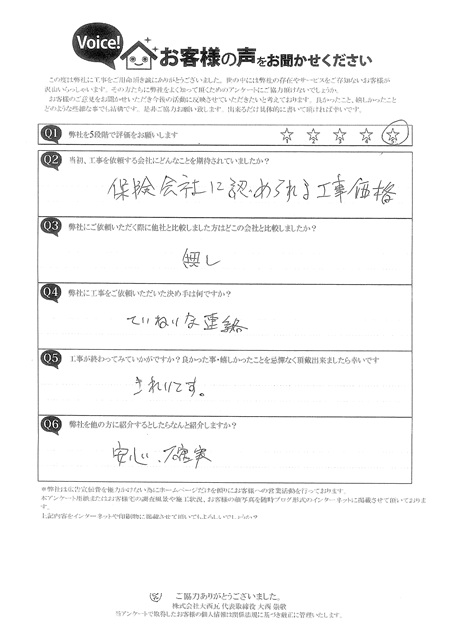 Voice!
お客様の声をお聞かせください
この度は弊社に工事をご用命頂き誠にありがとうございました。世の中には弊社の存在やサービスをご存知ないお客様が
沢山いらっしゃいます。その方たちに弊社をよく知って頂くためのアンケートにご協力頂けないでしょうか。
お客様のご意見をお聞かせいただき今後の活動に反映させていただきたいと考えております。良かったこと、嬉しかったこと
どのような些細な事でも結構です。是非ご協力お願い致します。出来るだけ具体的に書いて頂ければ幸いです。
Q1 弊社を5段階で評価をお願いします ☆ ☆ ☆ ☆ ☆
Q2 当初、工事を依頼する会社にどんなことを期待されていましたか?
保険会社に認められる工事価格
Q3 弊社にご依頼いただく際に他社と比較しました方はどこの会社と比較しましたか?
無し
Q4 弊社に工事をご依頼いただいた決め手は何ですか?
ていねいな連絡
Q5 工事が終わってみていかがですか?良かった事・嬉しかったことを忌憚なく頂戴出来ましたら幸いです
きれいです。
Q6 弊社を他の方に紹介するとしたらなんと紹介しますか?
安心、確実
*弊社は広告宣伝費を極力かけない為にホームページだけを頼りにお客様への営業活動を行っております。
本アンケート用紙またはお客様宅の調査風景や施工状況、お客様の顔写真を随時ブログ形式のインターネットに掲載させて頂いております。
上記内容をインターネットや印刷物に掲載させて頂いてもよろしいでしょうか?
ご協力ありがとうございました。
株式会社大西瓦 代表取締役 大西 崇敬
当アンケートで取得したお客様の個人情報は関係法規に基づき厳正に管理いたします。